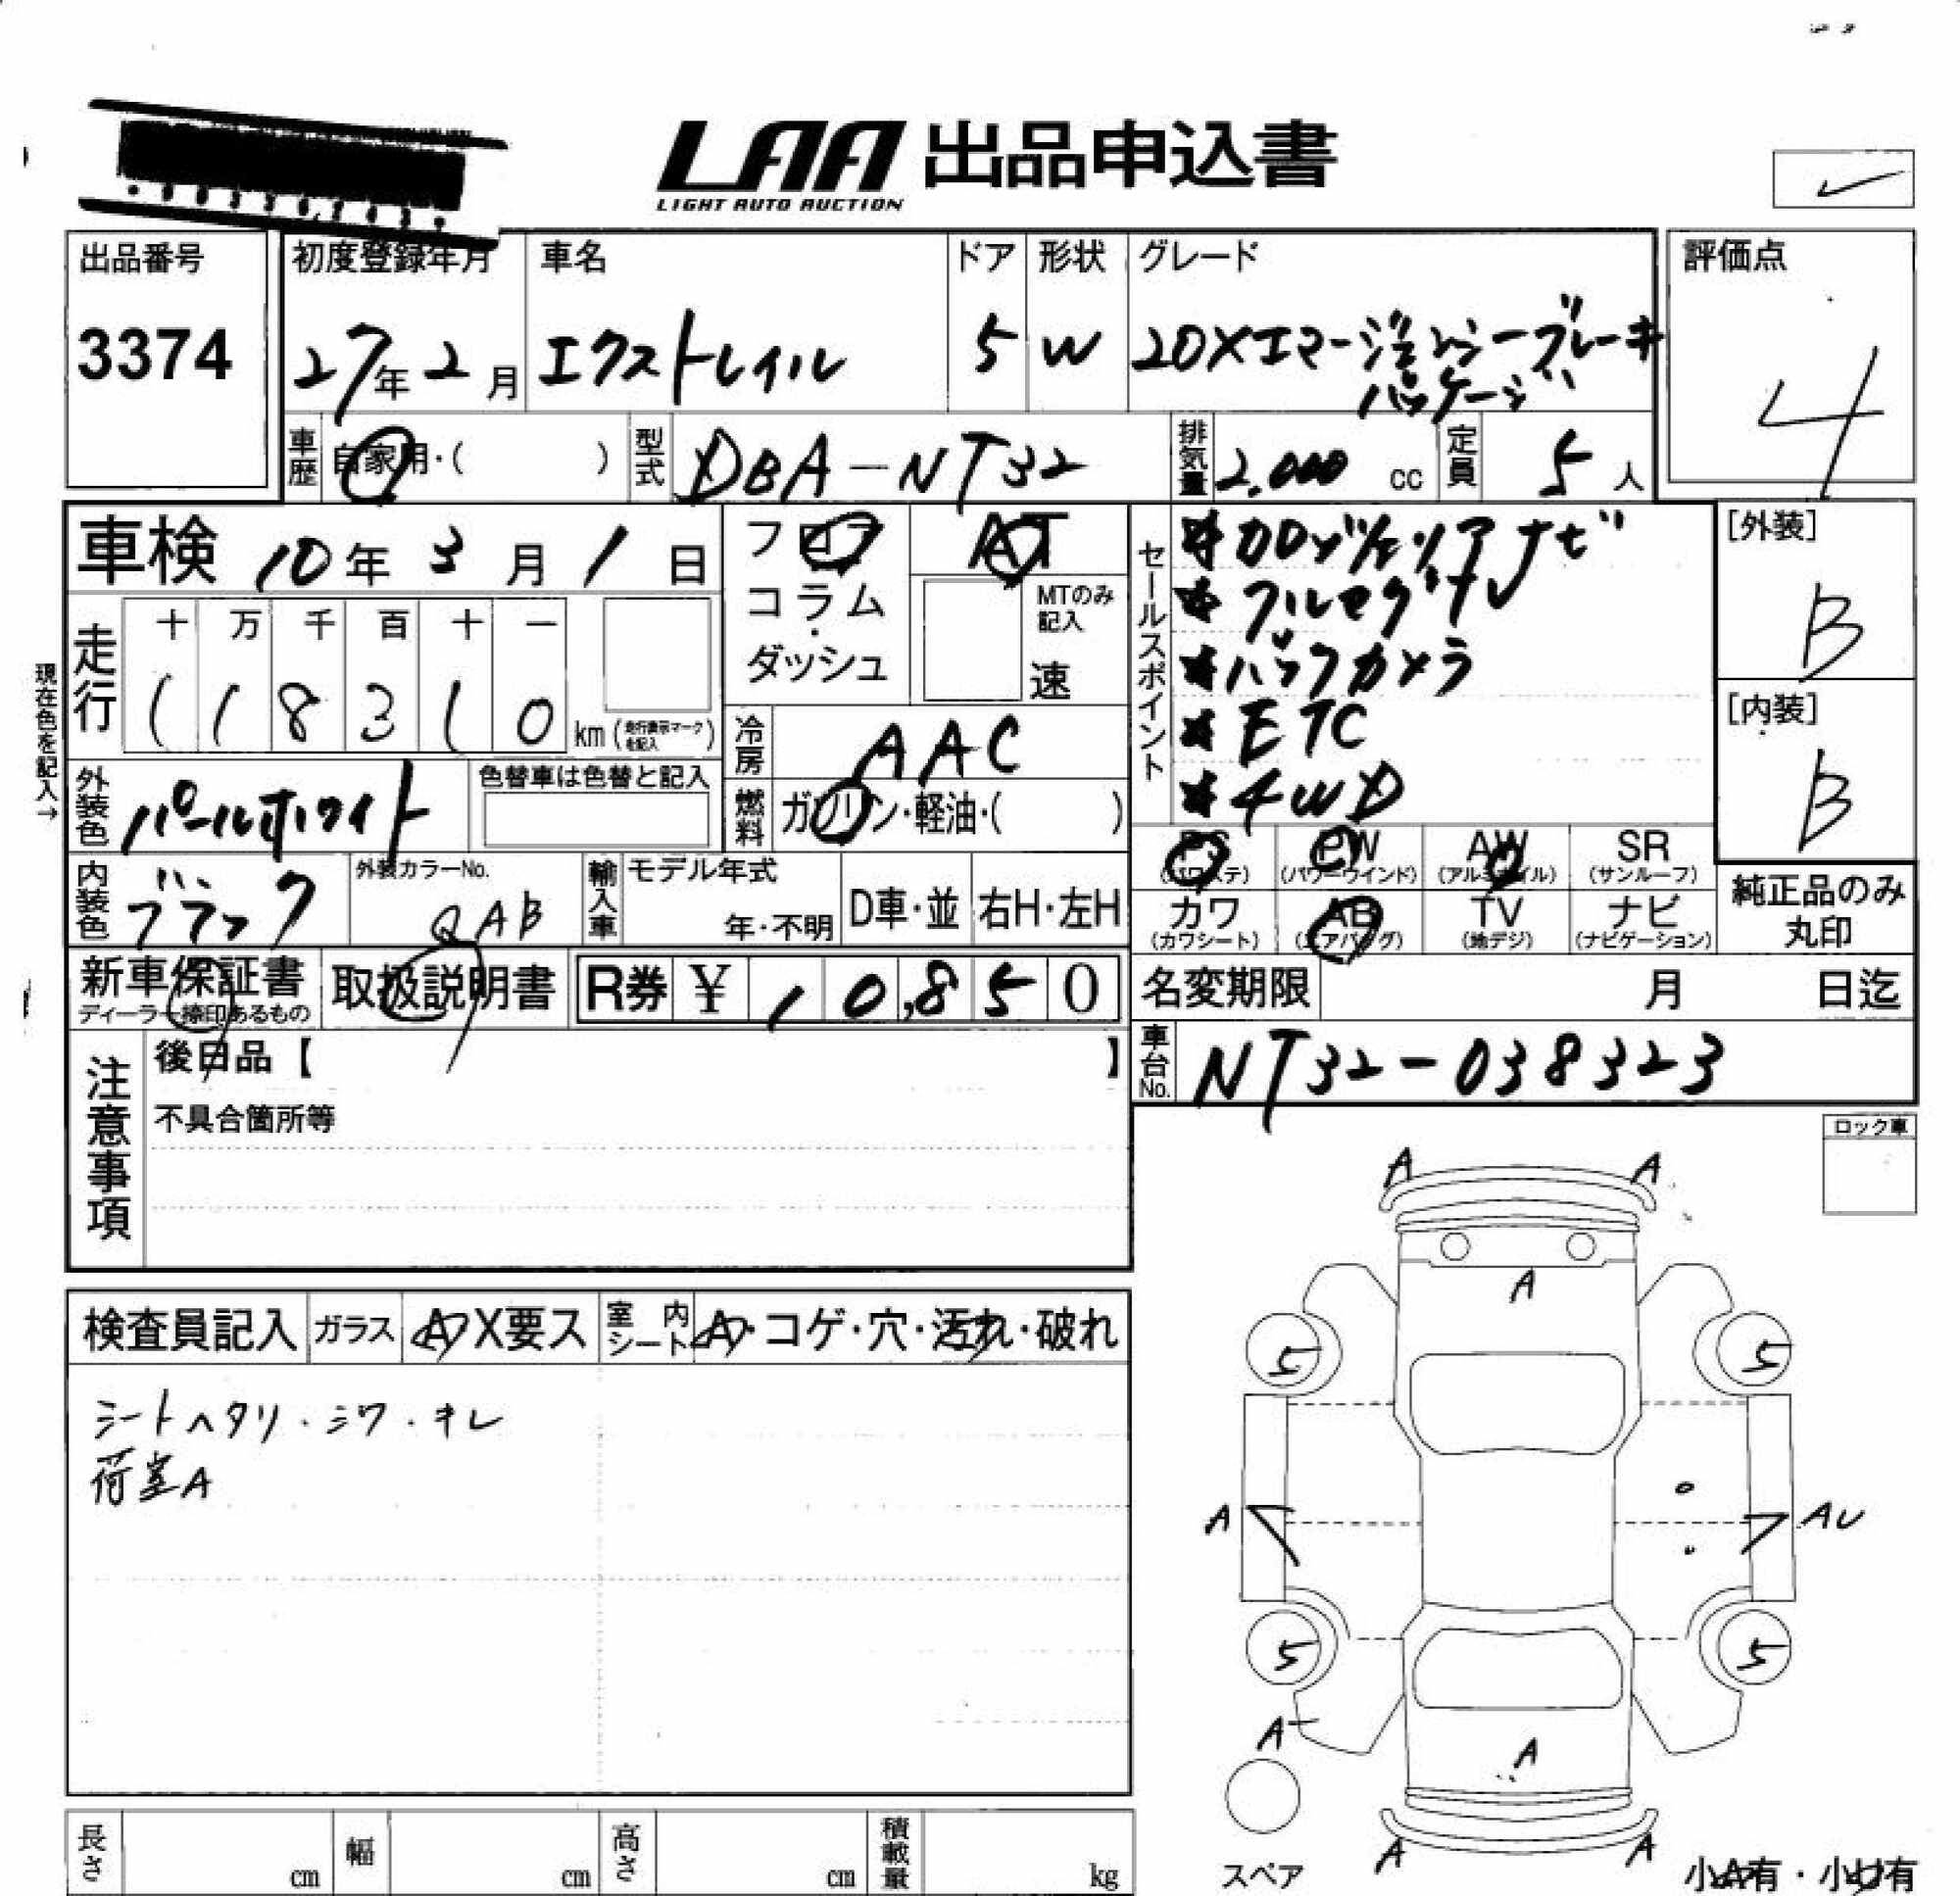 LAA 出品申込書
LIGHT AUTO AUCTION
出品番号
3374
初度登録年月
27年2月
車名
エクストレイル
ドア
5
形状
W
グレード
20Xエマージェンシーブレーキ
パッケージ
評価点
4
車歴
自家用・( )
型式
DBA-NT32
排気量
2,000 cc
定員
5人
車検 10年3月1日
走行
十 万 千 百 十 一
1 1 8 3 1 0 km (走行表示マークを記入)
現在色を記入→
フロア
コラム
・
ダッシュ
AT
MTのみ
記入
速
冷房
AAC
燃料
ガソリン・軽油・( )
外装色
パールホワイト
色替車は色替と記入
内装色
ブラック
外装カラーNo.
QAB
輸入車
モデル年式
年・不明
D車・並
右H・左H
新車保証書
ディーラー捺印あるもの
取扱説明書
R券 ¥ 10,850
セールスポイント
*カロッツェリアナビ
*フルセグTV
*バックカメラ
*ETC
*4WD
[外装]
B
[内装]
B
PS
(パワステ)
PW
(パワーウインド)
AW
(アルミホイル)
SR
(サンルーフ)
カワ
(カワシート)
AB
(エアバッグ)
TV
(地デジ)
ナビ
(ナビゲーション)
純正品のみ
丸印
名変期限 月 日迄
車台No.
NT32-038323
注意事項
後日品【 】
不具合箇所等
ロック車
検査員記入
ガラス
A・X要ス
室内シート
A・コゲ・穴・汚れ・破れ
シートヘタリ・シワ・キレ
荷室A
A A
A
5 5
A AU
5 5
A
A
A A
スペア
小A有・小U有
長さ cm
幅 cm
高さ cm
積載量 kg